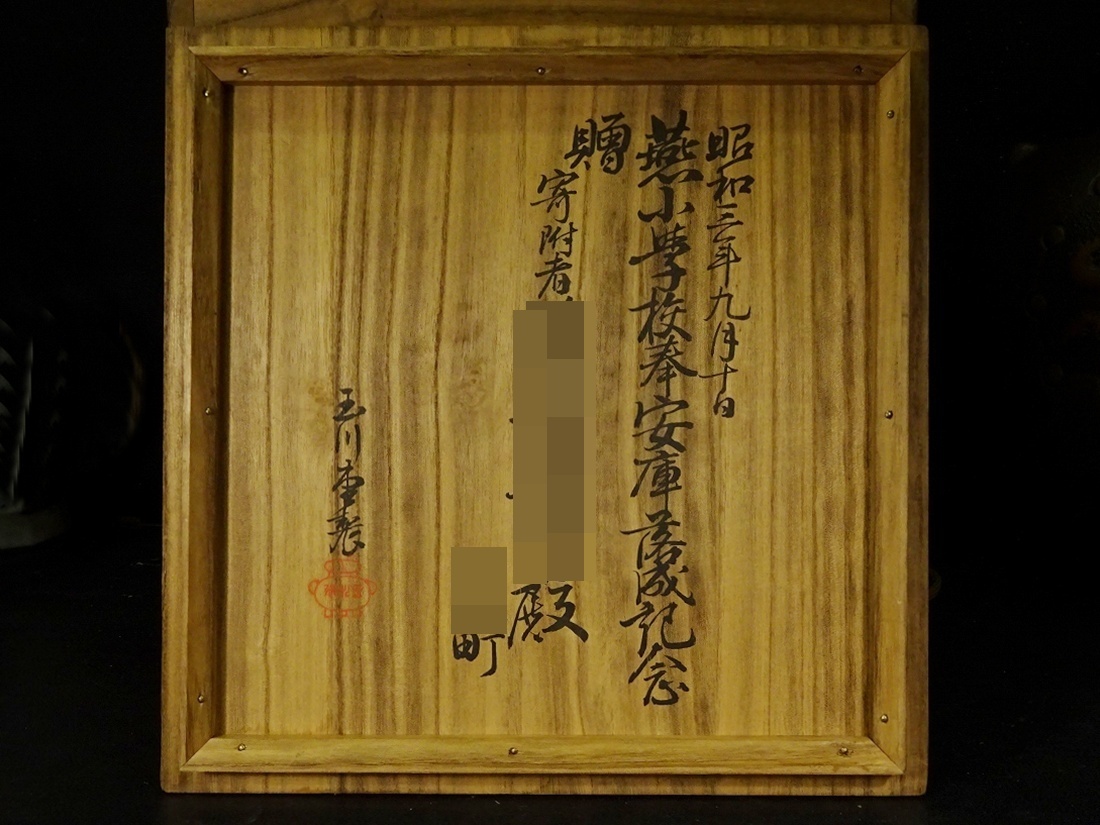 昭和三年九月十日
燕小學校奉安庫落成記念
贈
寄附者
殿
町
玉川堂製